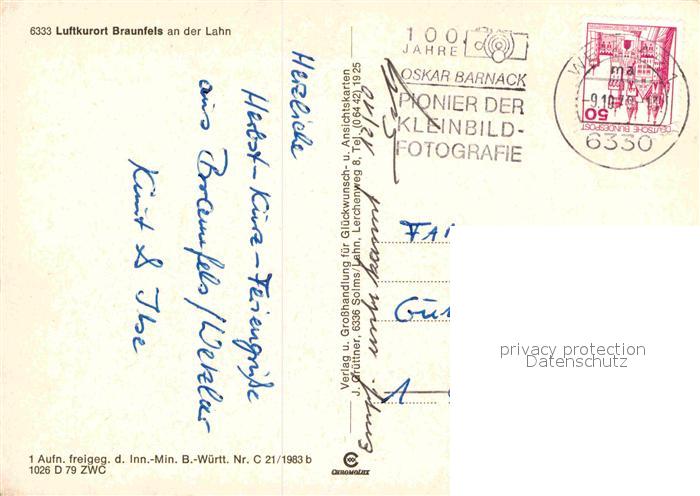 6333 Luftkurort Braunfels an der Lahn
Herzliche
Herbst-Kurz-Feriengrüße
aus Braunfels/Wetzlar
Kurt & Ilse
1 Aufn. freigeg. d. Inn.-Min. B.-Württ. Nr. C 21/1983 b
1026 D 79 ZWC
Verlag u. Großhandlung für Glückwunsch- u. Ansichtskarten
J. Grüttner, 6336 Solms/Lahn, Lerchenweg 8, Tel. (0 64 42) 19 25
CHROMOLUX
100
JAHRE
OSKAR BARNACK
PIONIER DER
KLEINBILD-
FOTOGRAFIE
-9.10.79
6330
50
DEUTSCHE BUNDESPOST
1
privacy protection
Datenschutz